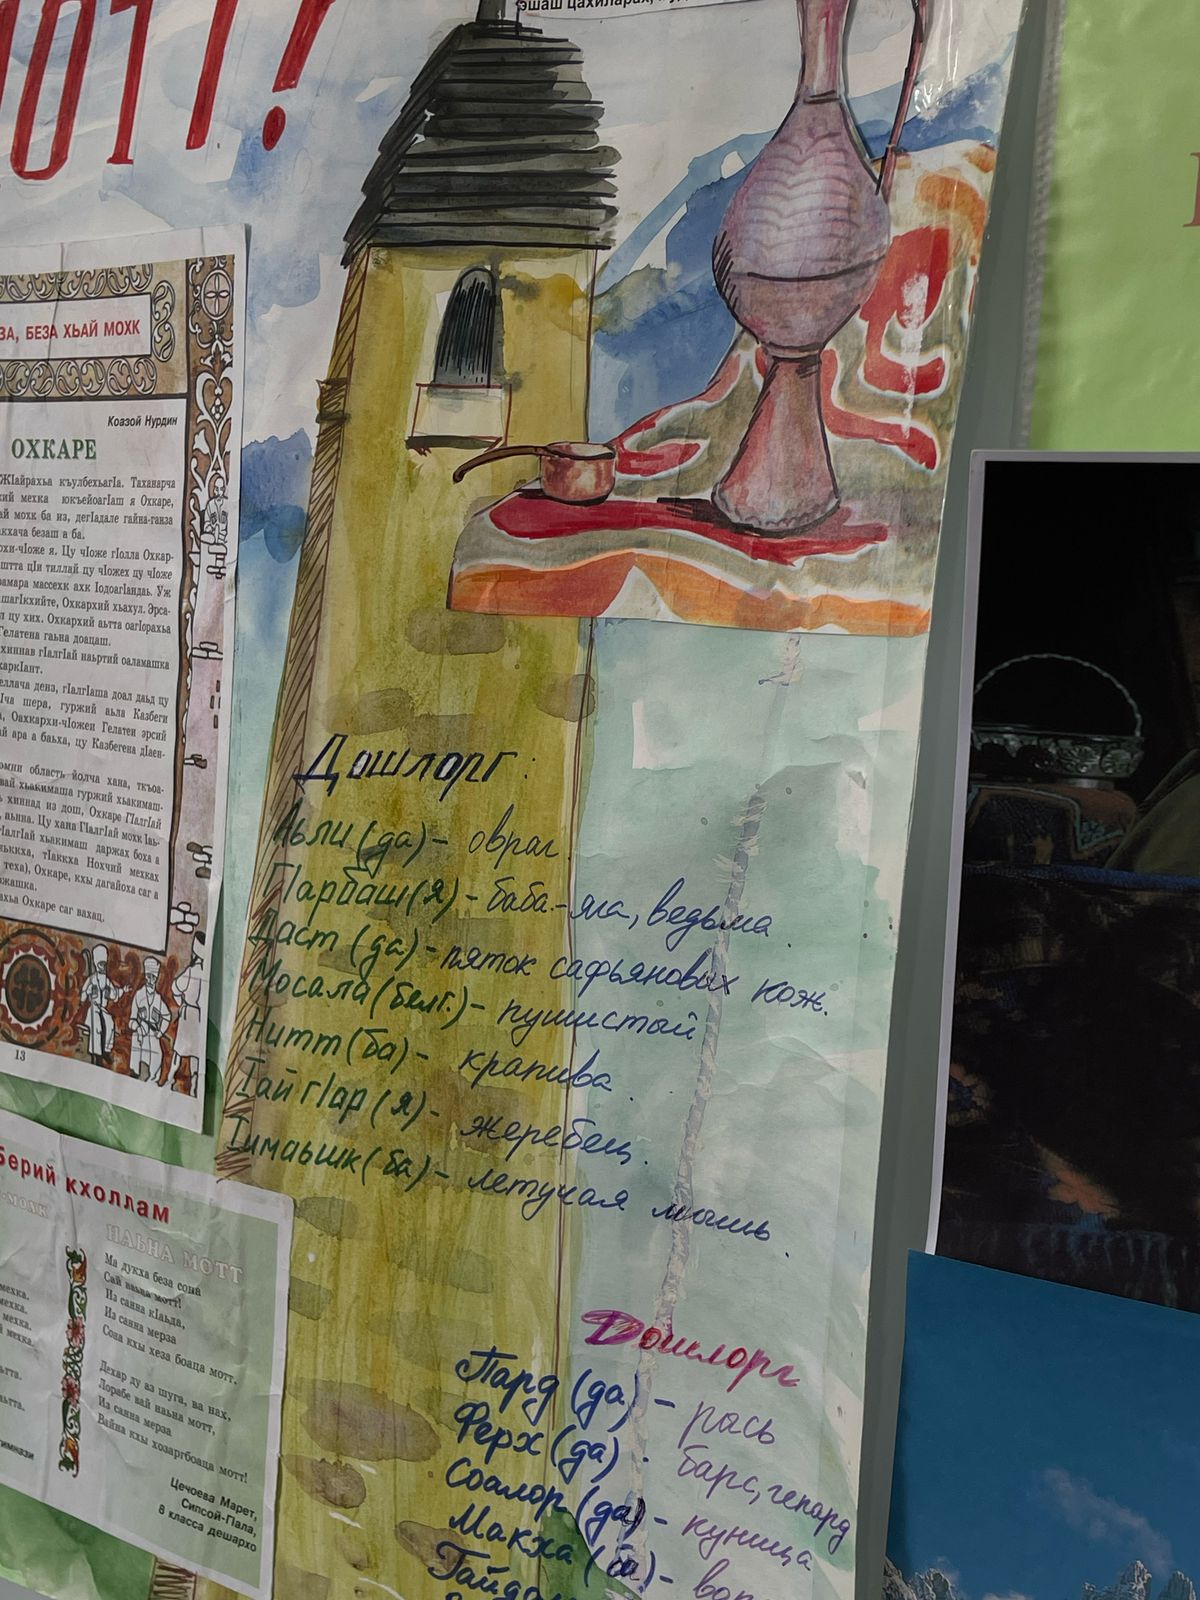 МОТТ!
эшаш цахиларах,
ЗА, БЕЗА ХЬАЙ МОХК
Коазой Нурдин
ОХКАРЕ
ЖӀайрахьа къулбехьагӀа. Таханарча
кий мехка юкъейоагӀаш я Охкаре,
ай мохк ба из, дегӀадале гайна-ганза
акхача безаш а ба.
охи-чӀоже я. Цу чӀоже гӀолла Охкар-
штта цӀи тиллай цу чӀожех цу чӀоже
замара массехк ахк Ӏодоагӏандаь. Уж
шагӀкхийте, Охкархий хьахул. Эрса-
л цу хих. Охкархий аьтта оагӀорахьа
Гелатена гаьна доацаш.
хиннав гӀалгӀай наьртий оаламашка
каркӀант.
еллача денз, гӀалгӀаша доал даьд цу
Ӏча шера, гуржий аьла Казбеги
а, Оахкархи-чӀожеи Гелатен эрсий
ай ара а баьха, цу Казбегена дӀаен-
омни область йолча хана, ткъоа-
вай хьакимаша гуржий хьакимаш-
ь хиннад из дош, Охкаре ГӀалгӀай
, аьнна. Цу хана ГӀалгӀай мохк Ӏаь-
гӀалгӀай хьакимаш даржах боха а
ньккха, тӀаккха Нохчий мехках
теха), Охкаре, кхы дагайоха саг а
ожашка.
ахьа Охкаре саг вахац.
13
Дошлорг:
Аьли (да) - овраг.
ГӀарбаш (я) - баба-яга, ведьма.
Даст (да) - пяток сафьяновых кож.
Мосала (белг.) - пушистый
Нитт (ба) - крапива.
Ӏайгӏар (я) - жеребец.
Ӏимаьшк (ба) - летучая мышь.
Берий кхоллам
МОХК
мехка.
мехка.
мехка.
й мехка.
ьтта.
ьтта.
гимнази
НАЬНА МОТТ
Ма дукха беза сона
Сай наьна мотт!
Из санна кӀаьда,
Из санна мерза
Сона кхы хеза боаца мотт.
Дехар ду аз шуга, ва нах,
Лорабе вай наьна мотт,
Из санна мерза
Вайна кхы хозаргбоаца мотт!
Цечоева Марет,
Сипсой-ГӀала,
8 класса дешархо
Дошлорг
Пард (да) - рысь
Ферх (да) - барс, гепард
Соалор (да) - куница
Макха (ба) - вор
Гайда